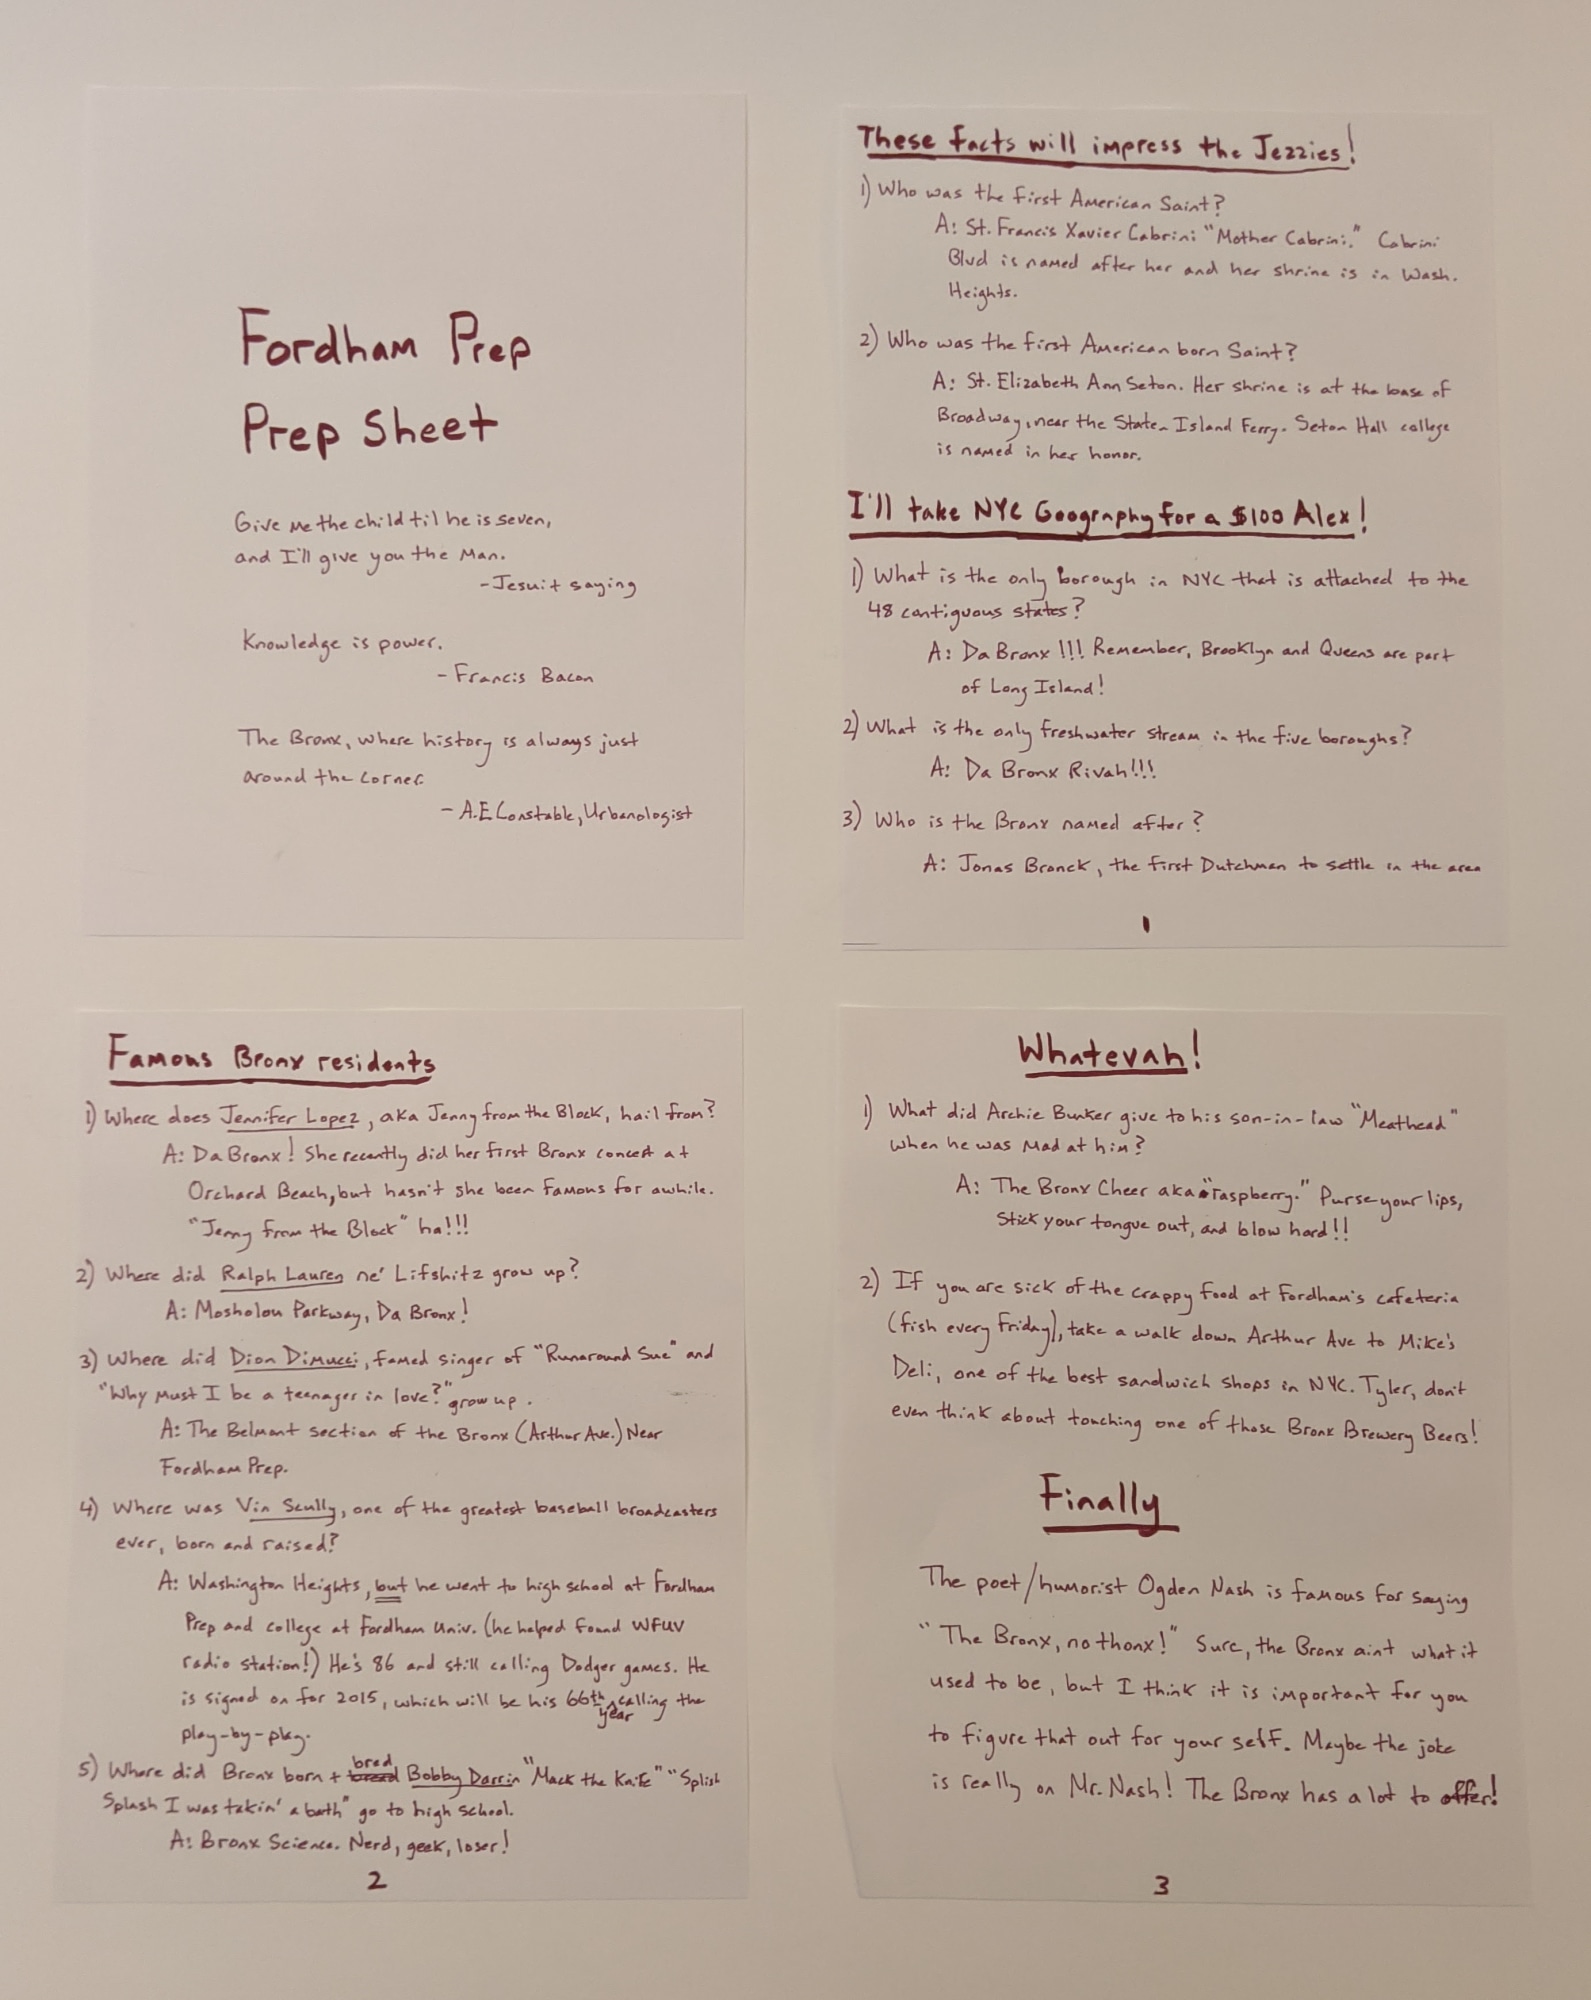 Fordham Prep
Prep Sheet
Give me the child til he is seven,
and I'll give you the Man.
-Jesuit saying
Knowledge is power.
- Francis Bacon
The Bronx, where history is always just
around the corner.
- A.E Constable, Urbanologist
These facts will impress the Jezzies!
1) Who was the first American Saint?
A: St. Francis Xavier Cabrini "Mother Cabrini." Cabrini
Blvd is named after her and her shrine is in Wash.
Heights.
2) Who was the first American born Saint?
A: St. Elizabeth Ann Seton. Her shrine is at the base of
Broadway, near the Staten Island Ferry. Seton Hall college
is named in her honor.
I'll take NYC Geography for a $100 Alex!
1) What is the only borough in NYC that is attached to the
48 contiguous states?
A: Da Bronx!!! Remember, Brooklyn and Queens are part
of Long Island!
2) What is the only freshwater stream in the five boroughs?
A: Da Bronx Rivah!!!
3) Who is the Bronx named after?
A: Jonas Bronck, the first Dutchman to settle in the area
1
Famous Bronx residents
1) Where does Jennifer Lopez, aka Jenny from the Block, hail from?
A: Da Bronx! She recently did her first Bronx concert at
Orchard Beach, but hasn't she been famous for awhile.
"Jenny from the Block" ha!!!
2) Where did Ralph Lauren ne' Lifshitz grow up?
A: Mosholou Parkway, Da Bronx!
3) Where did Dion Dimucci, famed singer of "Runaround Sue" and
"Why Must I be a teenager in love?" grow up.
A: The Belmont section of the Bronx (Arthur Ave.) Near
Fordham Prep.
4) Where was Vin Scully, one of the greatest baseball broadcasters
ever, born and raised?
A: Washington Heights, but he went to high school at Fordham
Prep and college at Fordham Univ. (he helped found WFUV
radio station!) He's 86 and still calling Dodger games. He
is signed on for 2015, which will be his 66th year calling the
play-by-play.
5) Where did Bronx born + bred Bobby Darrin "Mack the Knife" "Splish
Splash I was takin' a bath" go to high school.
A: Bronx Science. Nerd, geek, loser!
2
Whatevah!
1) What did Archie Bunker give to his son-in-law "Meathead"
when he was mad at him?
A: The Bronx Cheer aka "raspberry." Purse your lips,
stick your tongue out, and blow hard!!
2) If you are sick of the crappy food at Fordham's cafeteria
(fish every Friday), take a walk down Arthur Ave to Mike's
Deli, one of the best sandwich shops in NYC. Tyler, don't
even think about touching one of those Bronx Brewery Beers!
Finally
The poet/humorist Ogden Nash is famous for saying
"The Bronx, no thonx!" Sure, the Bronx aint what it
used to be, but I think it is important for you
to figure that out for your self. Maybe the joke
is really on Mr. Nash! The Bronx has a lot to offer!
3